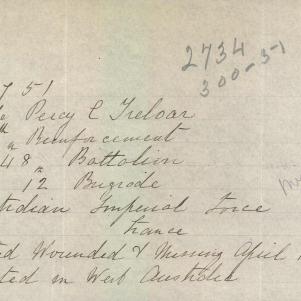 2734
300-3-1
751
Percy C Treloar
Reinforcement
48th Battalion
12 Brigade
Imperial Force
France
Wounded & Missing April
in West Australia